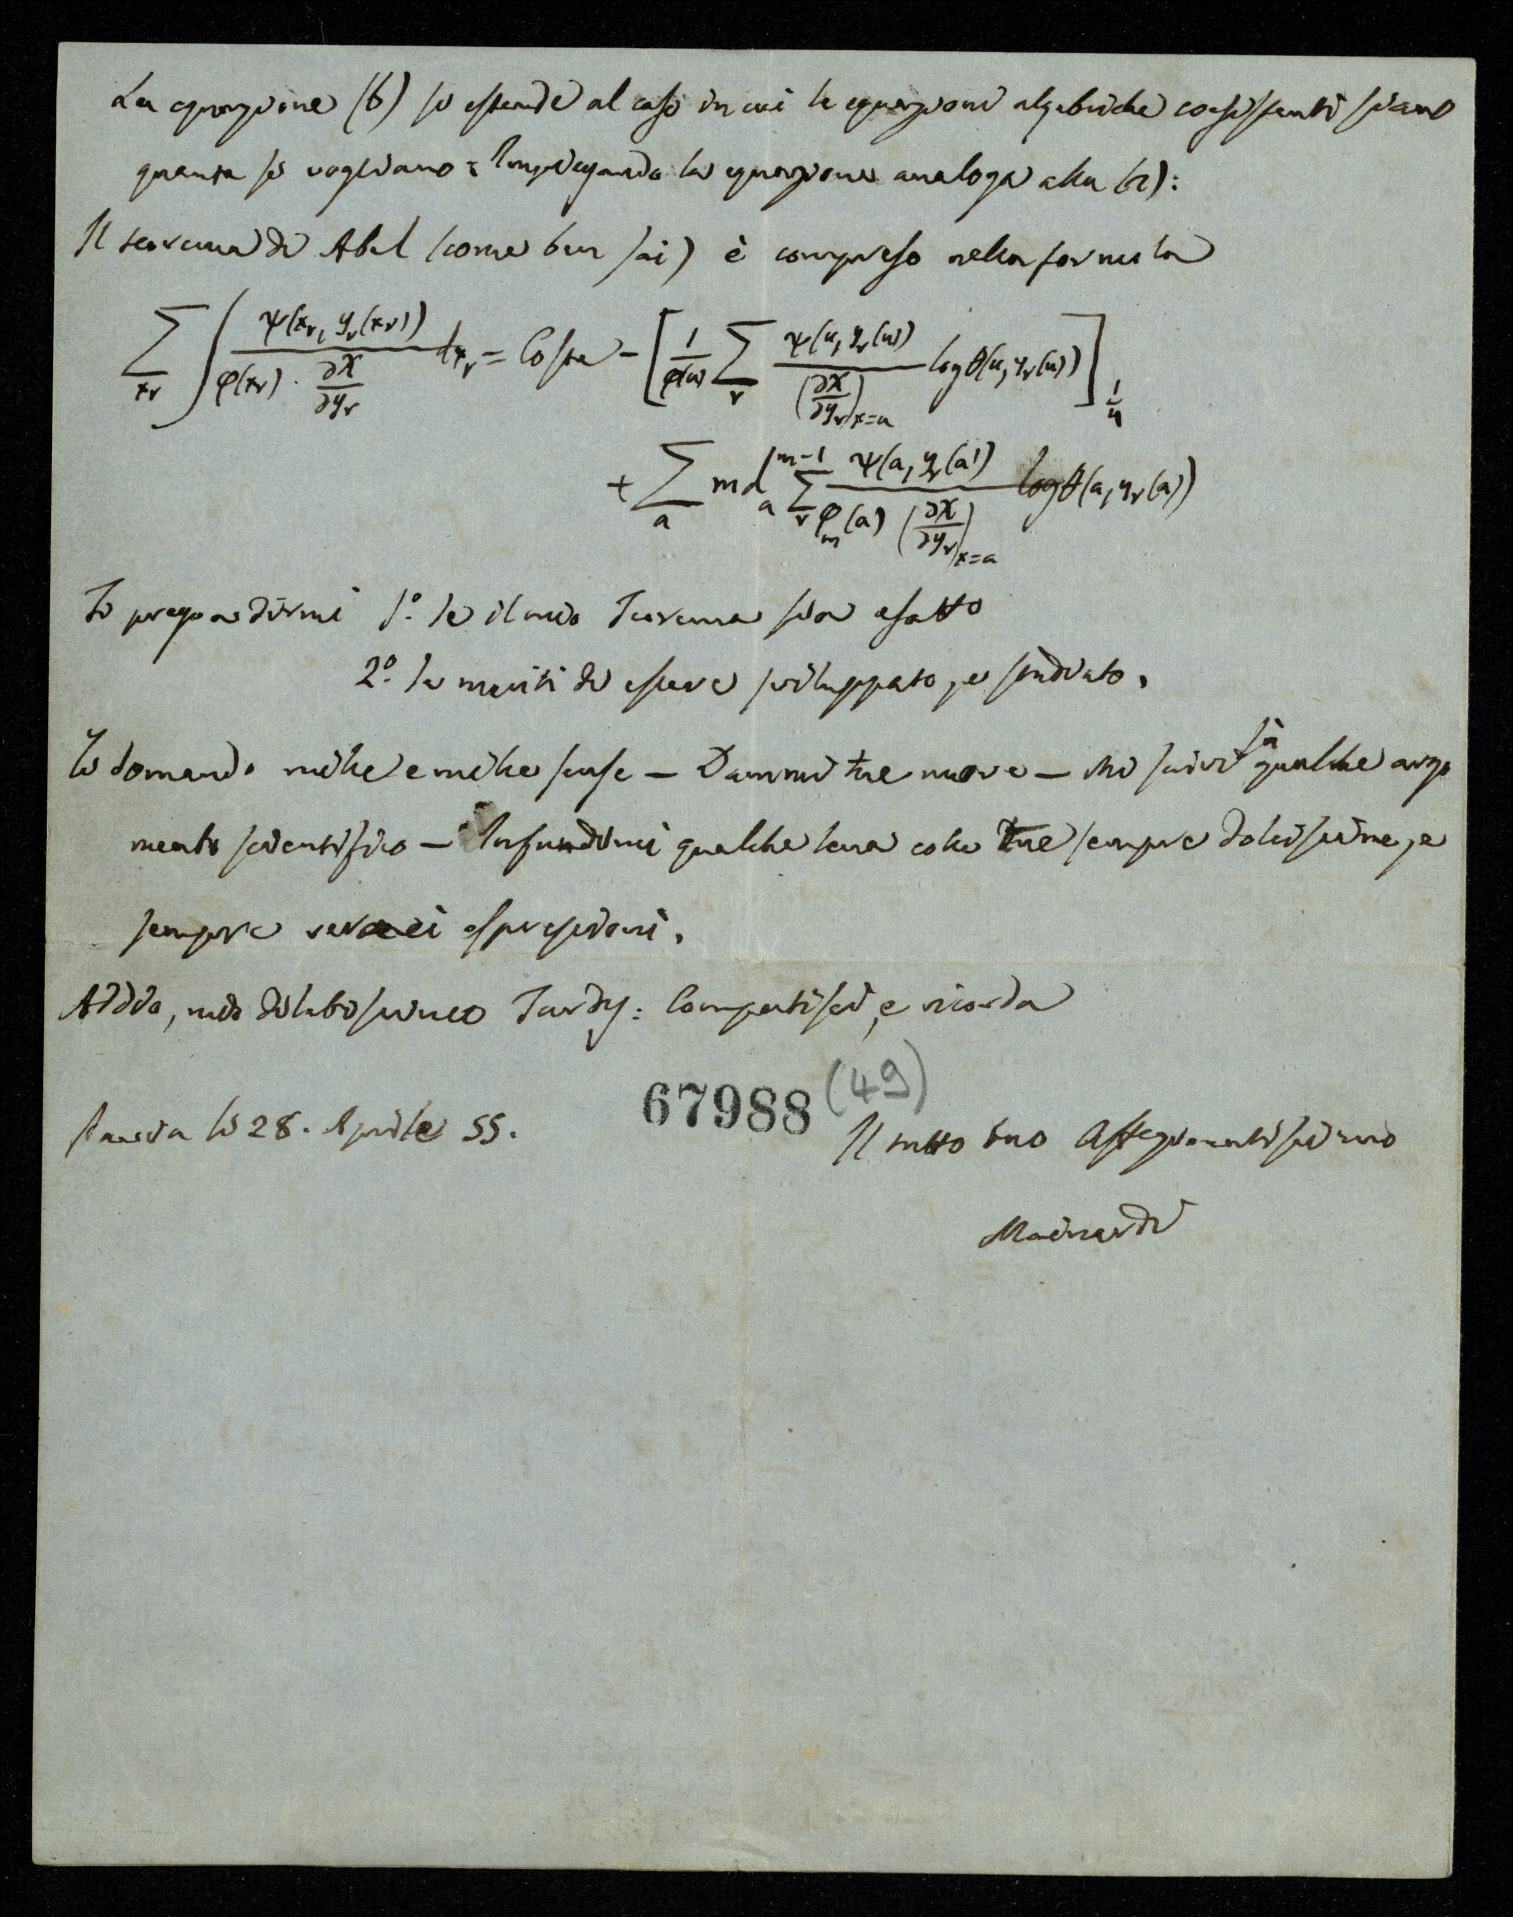 La equazione (b) si estende al caso in cui le equazioni algebriche coesistenti siano
quante si vogliano: Impiegando la equazione analoga alla (a):
Il teorema di Abel (come ben sai) è compreso nella formula
∑_{x_ν} ∫ ψ(x_ν, y_ν(x_ν)) / (φ(x_ν) · ∂χ/∂y_ν) dx_ν = Coste − [ 1/φ(u) ∑_ν ψ(u, y_ν(u)) / (∂χ/∂y_ν)_{x=u} log θ(u, y_ν(u)) ]_{1/u}
+ ∑_a m d_a^{m−1} ∑_ν ψ(a, y_ν(a)) / (φ_m(a) (∂χ/∂y_ν)_{x=a}) log θ(a, y_ν(a))
Ti prego a dirmi 1.º se il mio Teorema sia esatto
2.º se meriti di essere sviluppato, e studiato.
Ti domando mille e mille scuse — Dammi tue nuove — Mi scrivi sù qualche argo
mento scientifico — Infundimi qualche lena colle tue sempre dolcissime, e
sempre veraci espressioni.
Addio, mio dilettissimo Tardy: Compatisci, e ricorda
Pavia li 28. Aprile 55.
67988 (49)
Il tutto tuo Affezionatissimo
Mainardi